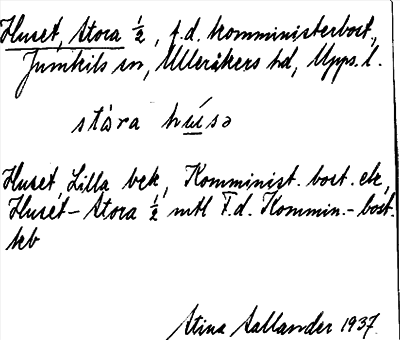 Huset, Stora ½, f.d. komministerbost.,
Jumkils sn, Ulleråkers hd, Upps. l.
stára húsə
Huset, Lilla bek, Komminist. bost. ek,
Huset - Stora ½ mtl F.d. Kommin.- bost.
kb
Stina Sallander 1937.